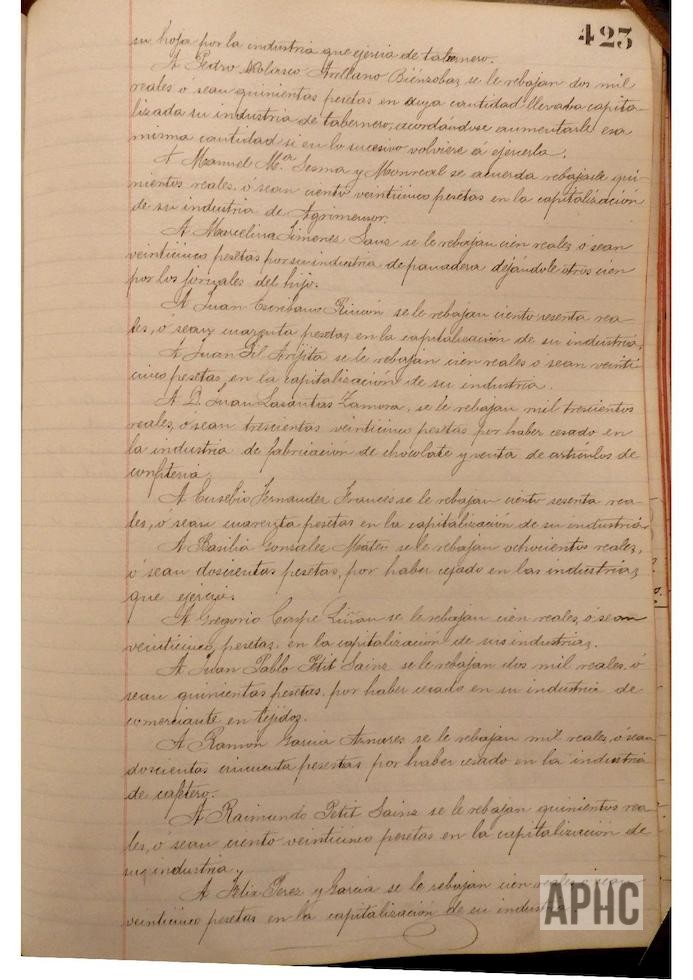 423
su hoja por la industria que ejercia de tabernero.
A Pedro Nolasco Arellano Bienzobaz se le rebajan dos mil
reales ó sean quinientas pesetas en cuya cantidad llevaba capita-
lizada su industria de tabernero, acordándose aumentarle esa
misma cantidad si en lo sucesivo volviere á ejercerla.
A Manuel Mª Sesma y Monreal se acuerda rebajarle qui-
nientos reales, ó sean ciento veinticinco pesetas en la capitalización
de su industria de Agrimensor.
A Marcelina Jimenes Sanz se le rebajan cien reales ó sean
veinticinco pesetas por su industria de panadera dejándole otros cien
por los jornales del hijo.
A Juan Escribano Rincón se le rebajan ciento sesenta rea-
les, ó sean cuarenta pesetas en la capitalización de su industria.
A Juan Gil Arjita se le rebajan cien reales ó sean veinti-
cinco pesetas, en la capitalización de su industria.
A D. Juan Lasantas Zamora, se le rebajan mil trescientos
reales, ó sean trescientas veinticinco pesetas por haber cesado en
la industria de fabricacion de chocolate y venta de artículos de
confiteria.
A Eusebio Fernander Frances se le rebajan ciento sesenta rea-
les, ó sean cuarenta pesetas en la capitalización de su industria.
A Basilia Gonsales Mateo se le rebajan ochocientos reales,
ó sean doscientas pesetas, por haber cejado en las industrias
que ejercia.
A Gregorio Carpe Liñan se le rebajan cien reales, ó sean
veinticinco, pesetas, en la capitalización de sus industrias.
A Juan Pablo Petit Sainz se le rebajan dos mil reales, ó
sean quinientas pesetas, por haber cesado en su industria de
comerciante en tejidos.
A Ramon Garcia Aznares se le rebajan mil reales, ó sean
doscientas cincuenta pesestas por haber cesado en la industria
de cafetero.
A Raimundo Petit Sainz se le rebajan quinientos rea-
les, ó sean ciento veinticinco pesetas en la capitalización de
su industria.
A Felix Perez y Garcia se le rebajan cien reales ó sean
veinticinco pesetas en la capitalización de su industria
APHC